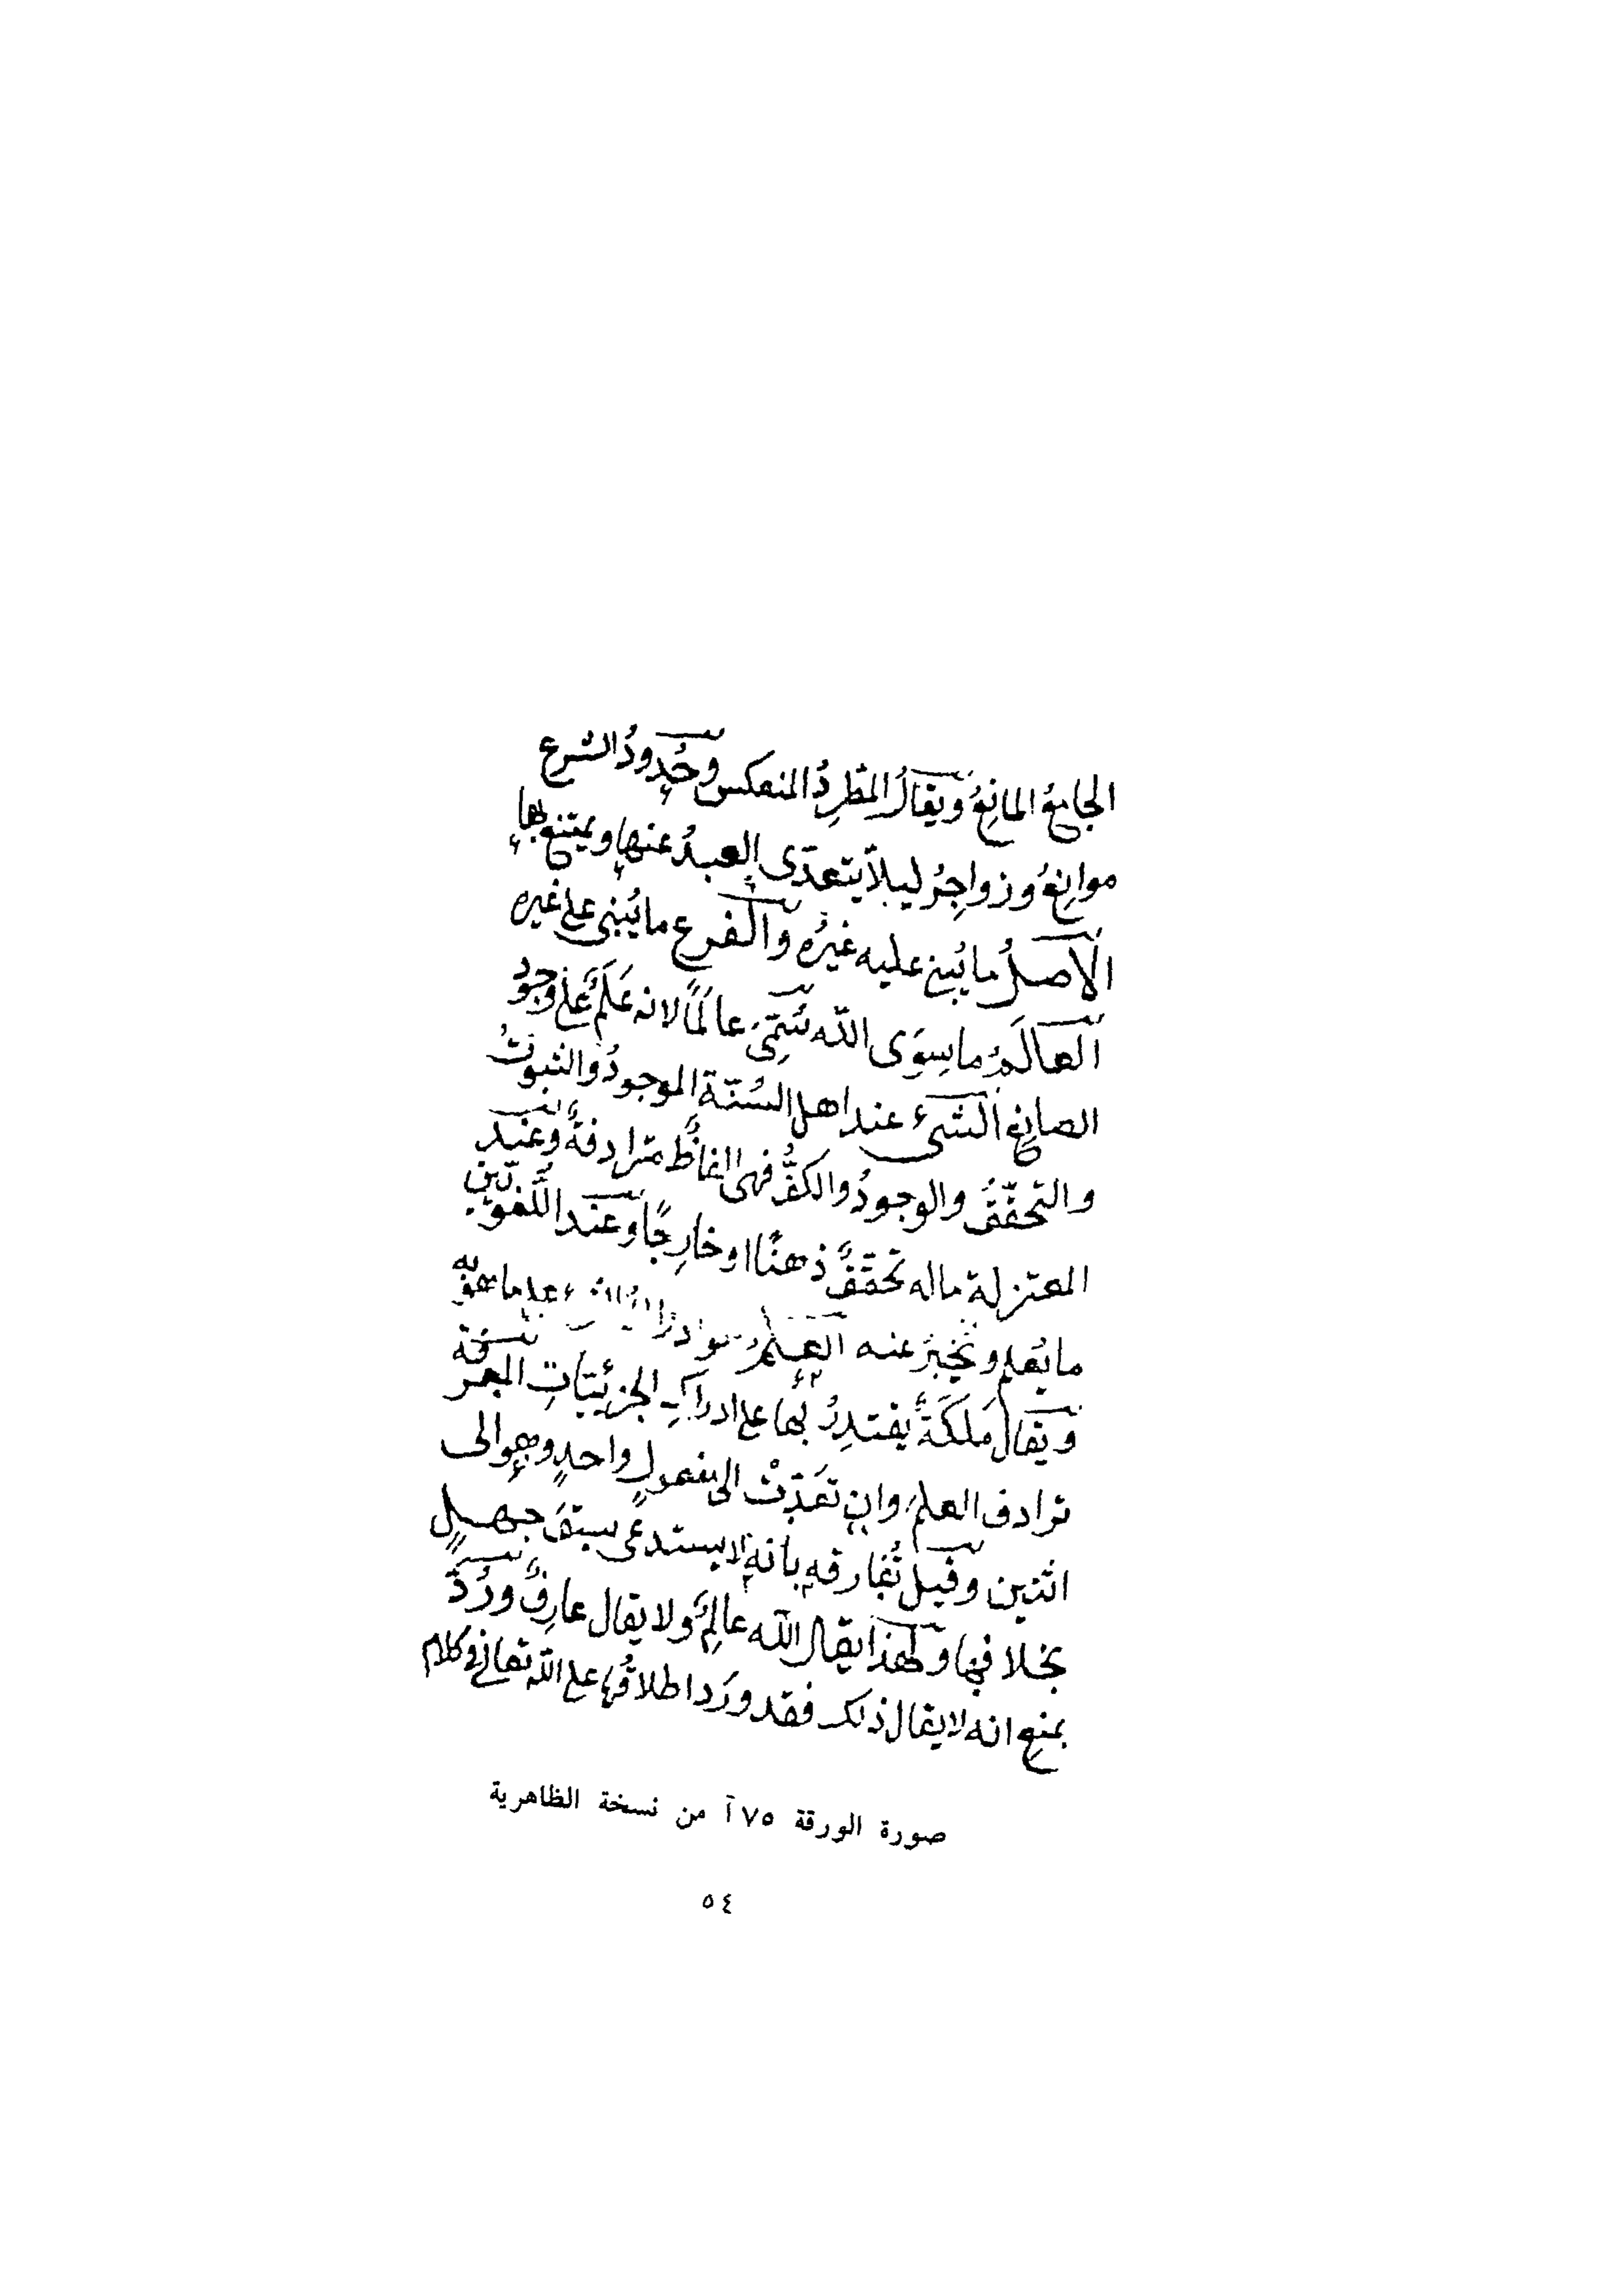 الجامعُ المانِعُ ويقَالُ المطّرِدُ المنعكس وحُدودُ الشرع
موانِعُ وزواجِرُ ليلّا يتعدّى العبدُ عنها ويمتنع بها
الأصلُ ما يُبنى عليه غيرُه والفرع ما يُبنى على غيره
العالَمُ ما سِوَى اللّه سُمِّيَ عالمًا لانه عَلَمٌ على وجود
الصانِع الشىء عند اهل السُنّة الموجودُ والثبوتُ
والتحقّقُ والوجودُ والكفُّ فهى الفاظٌ مترادفةٌ وعند
المعتزلة ماله تحقّقٌ ذهنًا او خارِجًا وعند اللّغويّين
ما يُعلم ويُخبَرُ عنه العِلمُ على ما هو به
ويقال مَلَكَةٌ يقتدِرُ بها على ادراكِ الجزئيّاتِ نسخة
ترادف العلمَ وان تعَدّتْ الى مفعولٍ واحدٍ وهو الى
اثنين وقيل تُفارقه بانه لا يستدعى سبقَ جهلٍ
بخلافها ولهذا يقال اللّه عالِمٌ ولا يقال عارِفٌ ورُدَّ
بمنع انه لا يقال ذلك فقد ورَد اطلاقُها على اللّه تعالى فى كلام
صورة الورقة ٧٥ آ من نسخة الظاهرية
٥٤